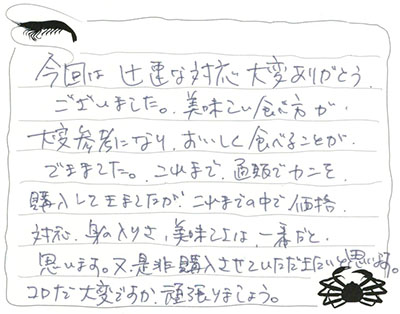 今回は 迅速な対応 大変ありがとう
ございました。美味しい食べ方が、
大変参考になり、おいしく食べることが
できました。これまで、通販でカニを
購入してきましたが、これまでの中で価格、
対応、身の入りさ、美味しさは、一番だと、
思います。又、是非購入させていただきたいと思います。
コロナ大変ですが、頑張りましょう。